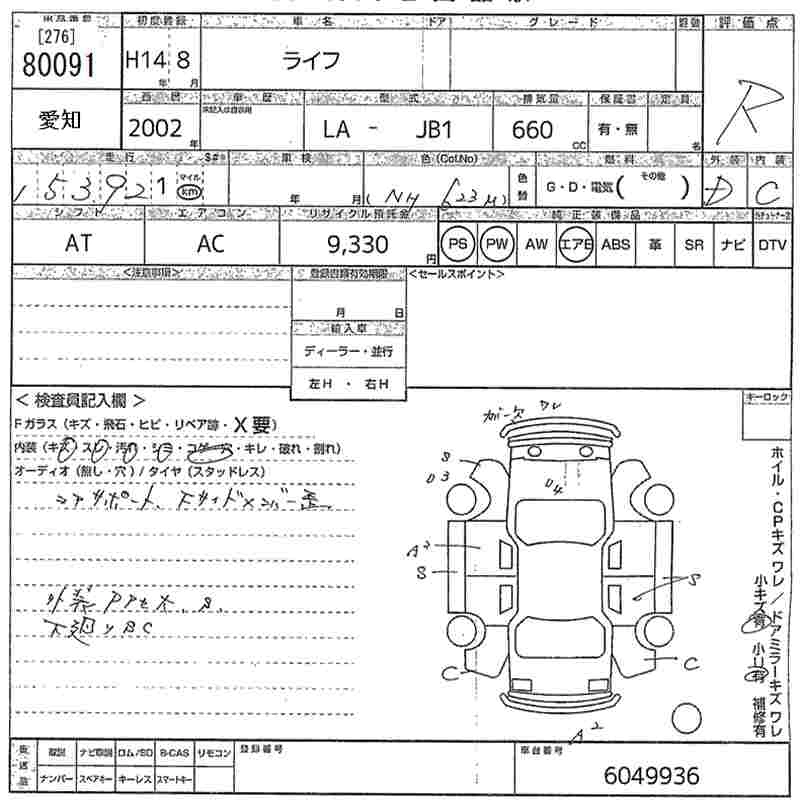 [276]
80091
初度登録
車名
ドア
グレード
評価点
H14 8
年 月
ライフ
R
愛知
西暦
車歴
型式
排気量
保証書
定員
2002
年
LA - JB1
660
CC
有・無
名
走行
車検
色(Col.No)
燃料
外装
内装
153921
マイル
km
年 月
(NH 623M)
色替
G・D・電気( その他 )
D
C
シフト
エアコン
リサイクル預託金
純正装備品
AT
AC
9,330
円
PS PW AW エアB ABS 革 SR ナビ DTV
<注意事項>
登録書類有効期限
<セールスポイント>
月 日
輸入車
ディーラー・並行
左H ・ 右H
< 検査員記入欄 >
キーロック
Fガラス(キズ・飛石・ヒビ・リペア跡・X要)
内装(キズ・スレ・汚れ・シミ・コゲ・穴・キレ・破れ・割れ)
オーディオ(無し・穴)/タイヤ(スタッドレス)
コアサポート、下サイドメンバー歪
外装
下廻りSC
ガー欠 ワレ
S
D3
D4
A2
S
S
C
C
A2
ホイル・CPキズ ワレ/ドアミラーキズ ワレ
小キズ有 小U有 補修有
取説 ナビ取説 ロム/SD B-CAS リモコン
登録番号
車台番号
ナンバー スペアキー キーレス スマートキー
6049936